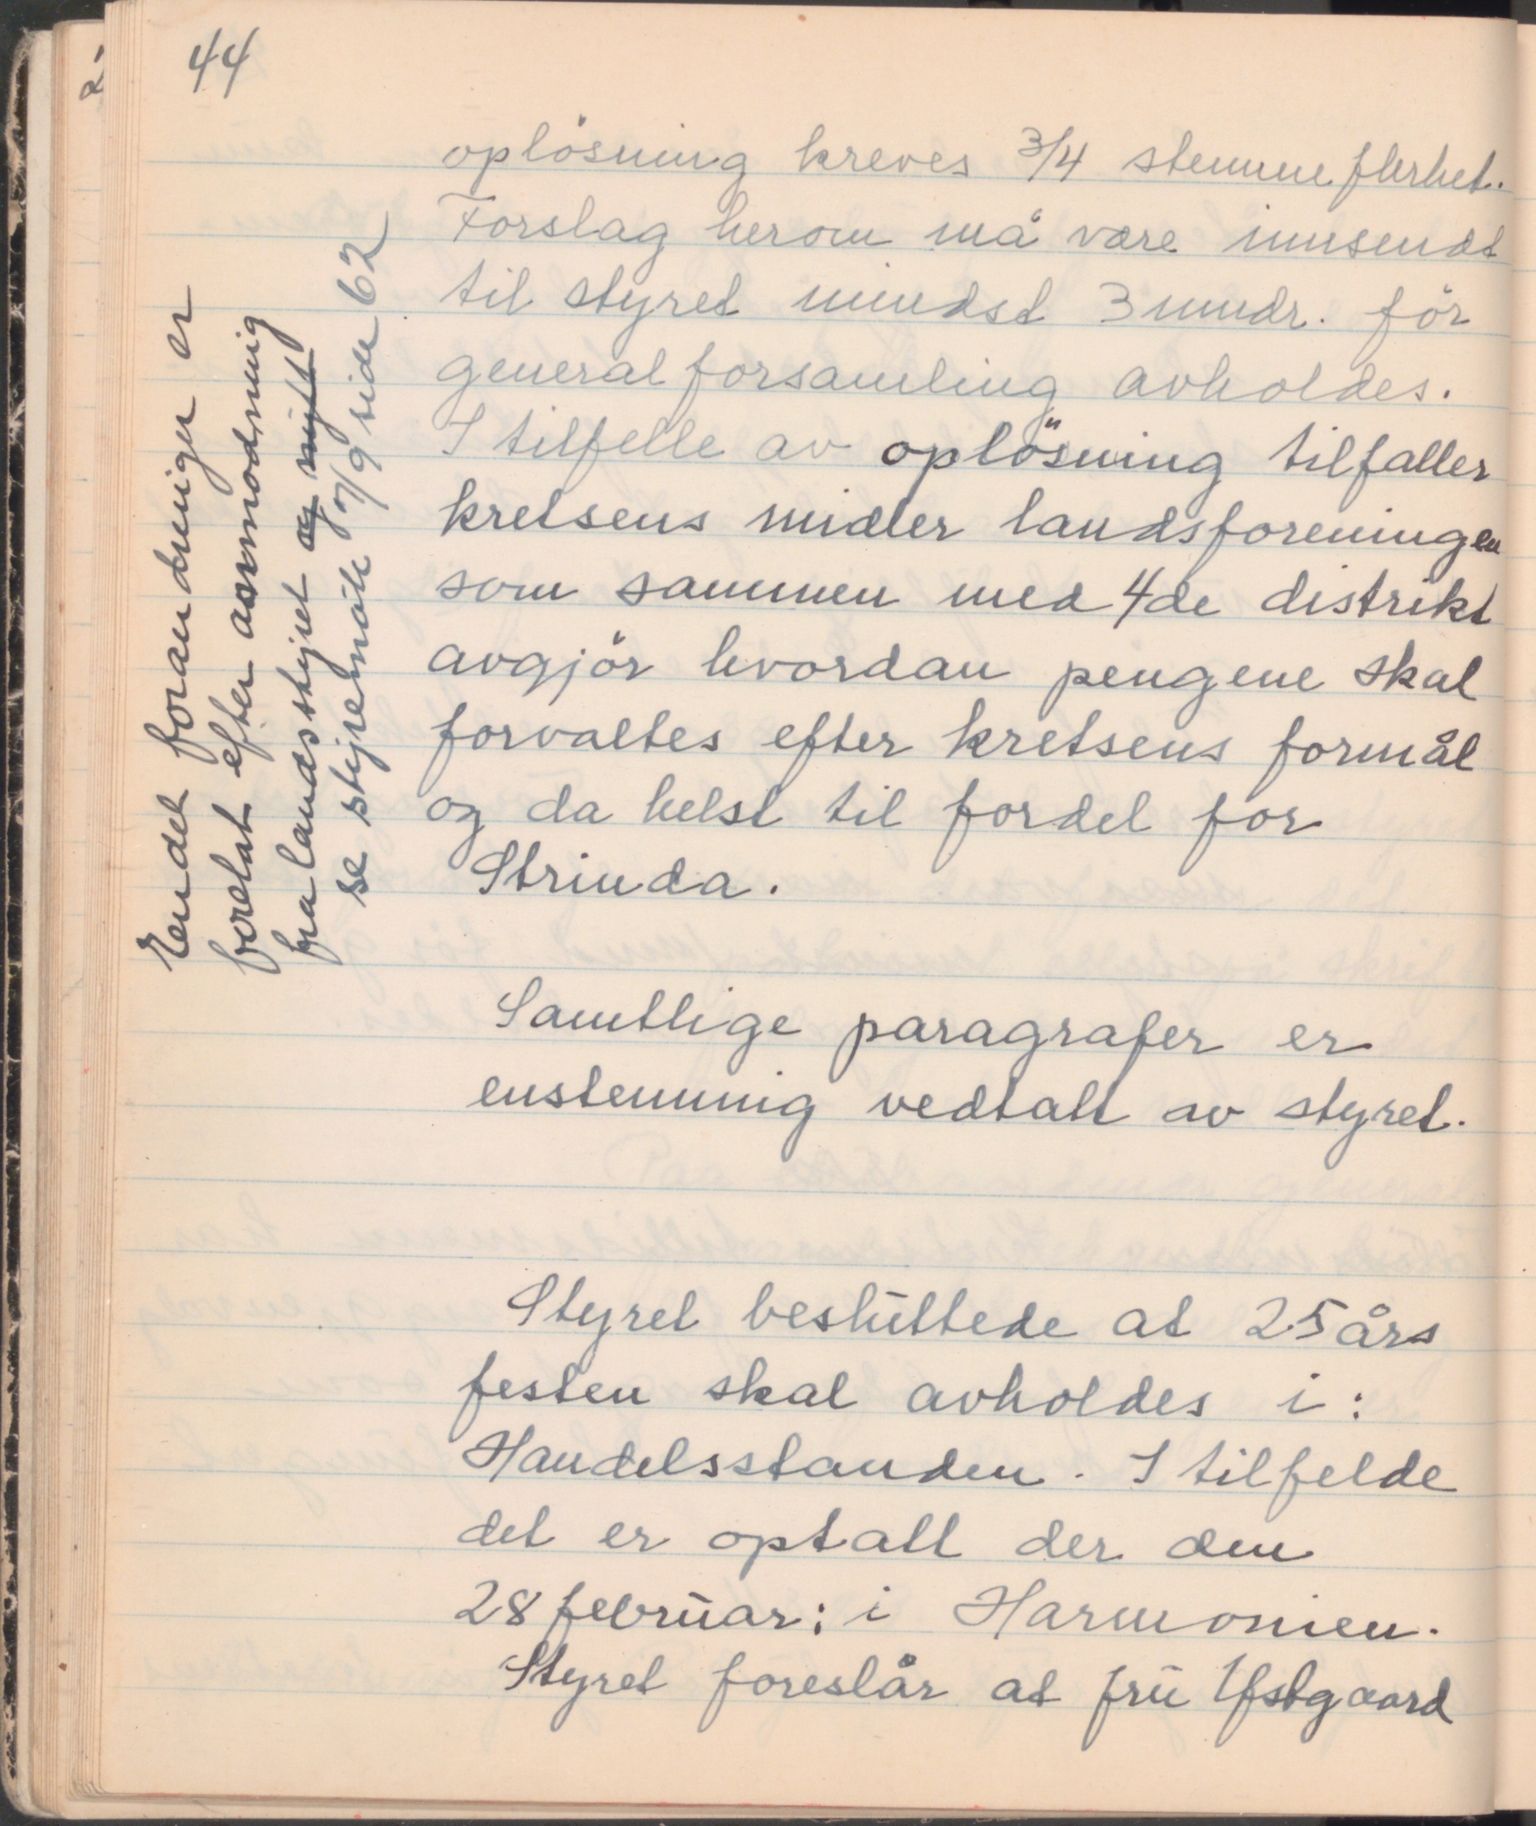 44
oplösning kreves 3/4 stemmeflerhet.
Forslag herom må være innsendt
til styret mindst 3 mndr. för
generalforsamling avholdes.
I tilfelle av oplösning tilfaller
kretsens midler landsforeningen
som sammen med 4de distrikt
avgjör hvordan pengene skal
forvaltes efter kretsens formål
og da helst til fordel for
Strinda.
Samtlige paragrafer er
enstemmig vedtatt av styret.
Styret besluttede at 25 års
festen skal avholdes i:
Handelsstanden. I tilfelde
det er optatt der den
28 februar: i Harmonien.
Styret foreslår at fru Ustgaard
Endel forandringer er
foretat efter anmodning
fra landsstyret og
se styremöte 7/9 side 62